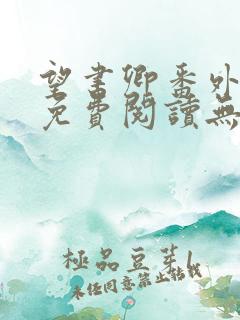 望書卿番外
免費閱讀無
極品豆芽1
未經同意禁止轉載